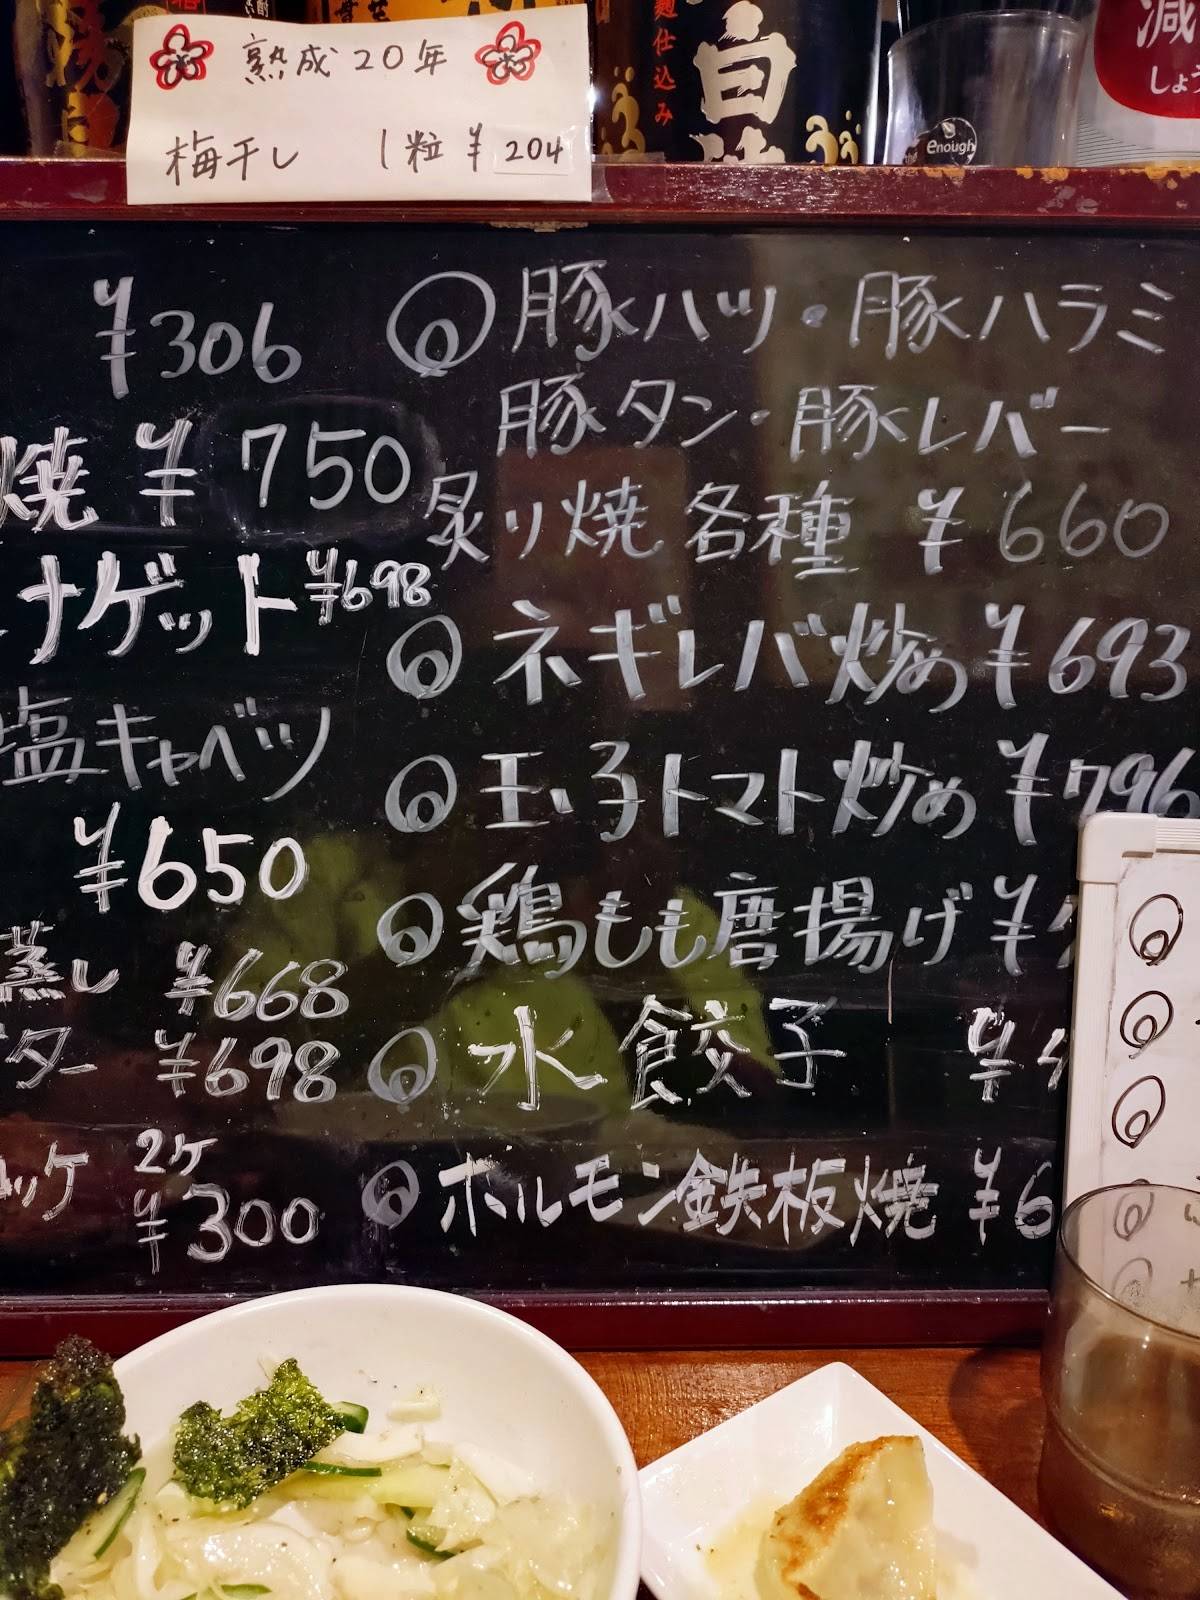 熟成20年
梅干し 1粒 ¥204
麹仕込み
白
enough
減
しょう
¥306
焼 ¥750
ナゲット ¥698
塩キャベツ
¥650
蒸し ¥668
ター ¥698
ッケ 2ヶ
¥300
豚ハツ・豚ハラミ
豚タン・豚レバー
炙り焼 各種 ¥660
ネギレバ炒め ¥693
玉子トマト炒め ¥796
鶏もも唐揚げ ¥
水餃子 ¥4
ホルモン鉄板焼 ¥6